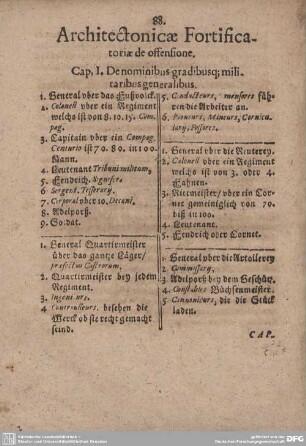 88.
Architectonicæ Fortifica-
toriæ de offensione.
Cap. I. De nominibus gradibusq; mili-
taribus generalibus.
1. General vber das Fußvolck.
2. Colonell vber ein Regiment
welchs ist von 8. 10. 15. Com-
pag.
3. Capitain vber ein Compag.
Centurio ist 70. 80. in 100.
Mann.
4. Leutenant Tribuni militum,
5. Fendrich, Signifer.
6. Sergent, Tesserary,
7. Corporal vber 10. Decani,
8. Adelporß.
9. Soldat.
1. General Quartirmeister
über das gantze Läger/
præfectus Castrorum,
2. Quartirmeister bey jedem
Regiment.
3. Ingenieurs.
4. Controlleurs, besehen die
Werck ob sie recht gemacht
seind.
5. Conducteurs, mensores füh-
ren die Arbeiter an.
6. Pioneurs, Mineurs, Cornicu-
lary, Fossores.
1. General vber die Reuterey.
2. Colonell oder ein Regiment
welchs ist von 3. oder 4.
Fahnen.
3. Ritmeister/ vber ein Cor-
net gemeiniglich von 70.
biß in 100.
4. Lieutenant.
5. Fendrich oder Cornet.
1. General vber die Artollerey
2. Commissary,
3. Adelporß bey dem Geschütz.
4. Constables Büchsenmeister.
5. Canonieurs, die die Stück
laden.
CAP.